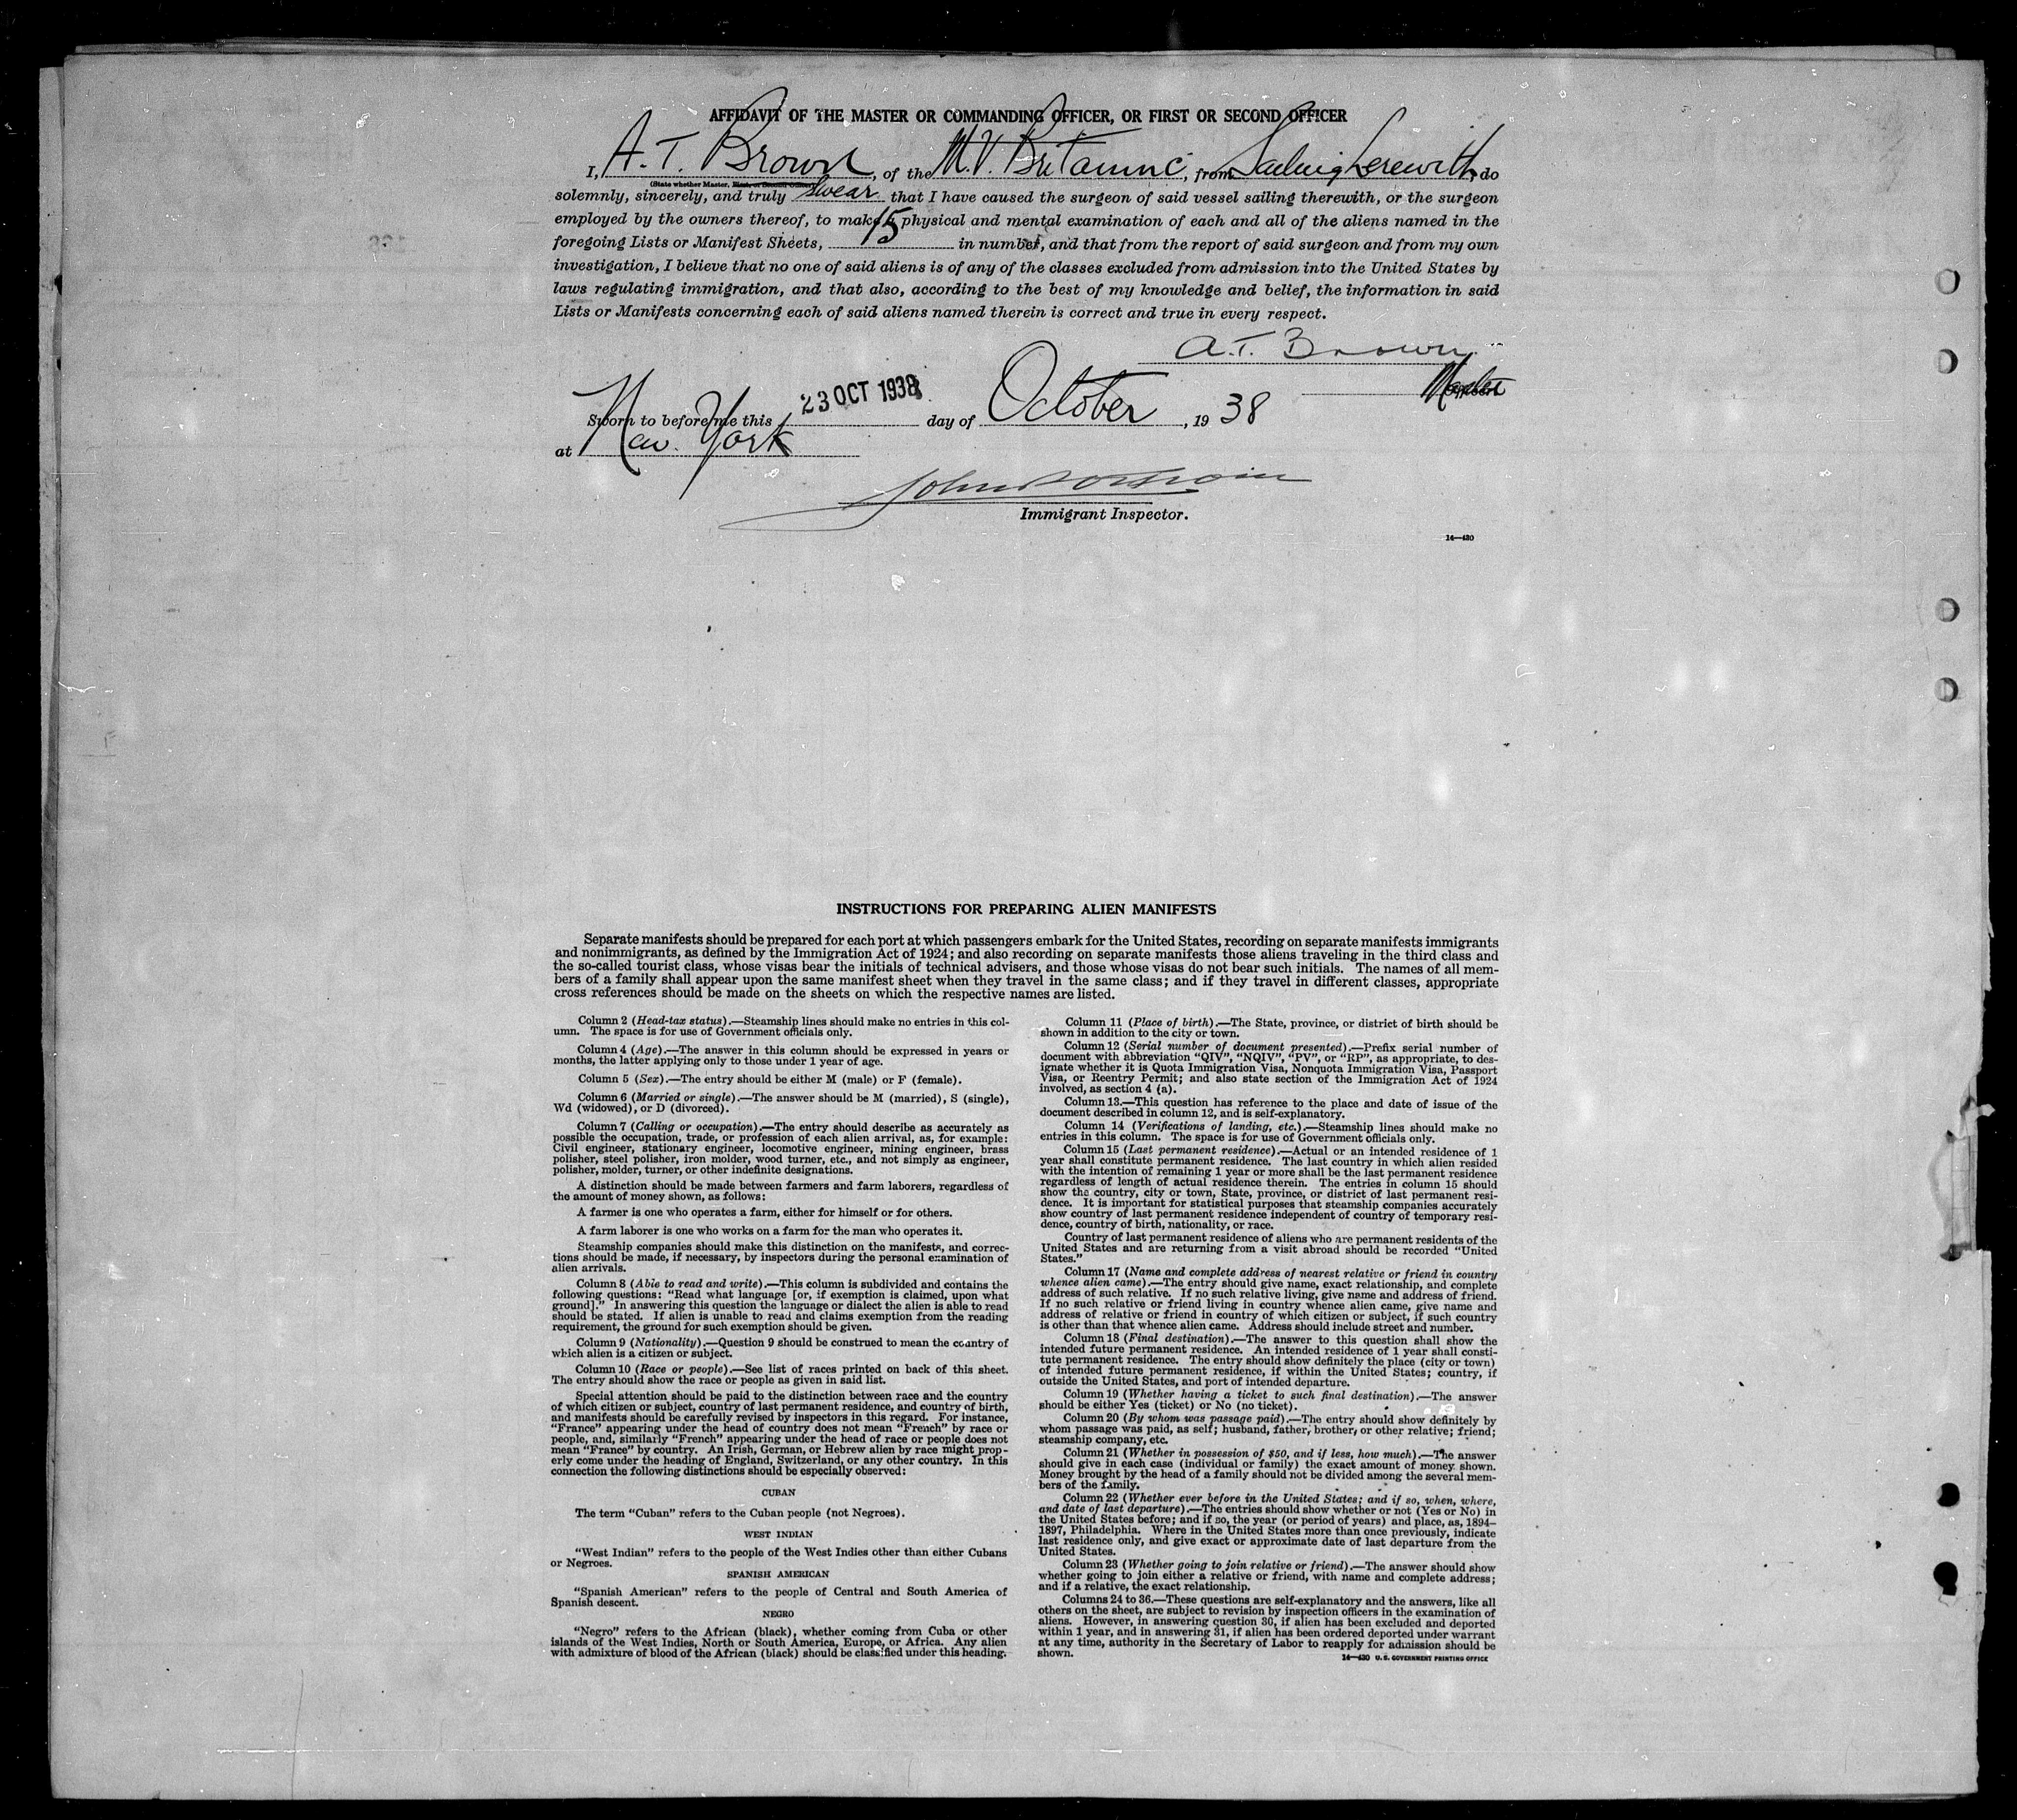 AFFIDAVIT OF THE MASTER OR COMMANDING OFFICER, OR FIRST OR SECOND OFFICER
I, A. T. Brown, of the M.V. Britannic, from Sailing herewith, do
(State whether Master, First, or Second Officer)
solemnly, sincerely, and truly swear that I have caused the surgeon of said vessel sailing therewith, or the surgeon
employed by the owners thereof, to make a physical and mental examination of each and all of the aliens named in the
foregoing Lists or Manifest Sheets, 15 in number, and that from the report of said surgeon and from my own
investigation, I believe that no one of said aliens is of any of the classes excluded from admission into the United States by
laws regulating immigration, and that also, according to the best of my knowledge and belief, the information in said
Lists or Manifests concerning each of said aliens named therein is correct and true in every respect.
A. T. Brown
Master
Sworn to before me this 23 OCT 1938 day of October, 19 38
at New York
Immigrant Inspector.
14—430
INSTRUCTIONS FOR PREPARING ALIEN MANIFESTS
Separate manifests should be prepared for each port at which passengers embark for the United States, recording on separate manifests immigrants
and nonimmigrants, as defined by the Immigration Act of 1924; and also recording on separate manifests those aliens traveling in the third class and
the so-called tourist class, whose visas bear the initials of technical advisers, and those whose visas do not bear such initials. The names of all mem-
bers of a family shall appear upon the same manifest sheet when they travel in the same class; and if they travel in different classes, appropriate
cross references should be made on the sheets on which the respective names are listed.
Column 2 (Head-tax status).—Steamship lines should make no entries in this col-
umn. The space is for use of Government officials only.
Column 4 (Age).—The answer in this column should be expressed in years or
months, the latter applying only to those under 1 year of age.
Column 5 (Sex).—The entry should be either M (male) or F (female).
Column 6 (Married or single).—The answer should be M (married), S (single),
Wd (widowed), or D (divorced).
Column 7 (Calling or occupation).—The entry should describe as accurately as
possible the occupation, trade, or profession of each alien arrival, as, for example:
Civil engineer, stationary engineer, locomotive engineer, mining engineer, brass
polisher, steel polisher, iron molder, wood turner, etc., and not simply as engineer,
polisher, molder, turner, or other indefinite designations.
A distinction should be made between farmers and farm laborers, regardless of
the amount of money shown, as follows:
A farmer is one who operates a farm, either for himself or for others.
A farm laborer is one who works on a farm for the man who operates it.
Steamship companies should make this distinction on the manifests, and correc-
tions should be made, if necessary, by inspectors during the personal examination of
alien arrivals.
Column 8 (Able to read and write).—This column is subdivided and contains the
following questions: "Read what language [or, if exemption is claimed, upon what
ground]." In answering this question the language or dialect the alien is able to read
should be stated. If alien is unable to read and claims exemption from the reading
requirement, the ground for such exemption should be given.
Column 9 (Nationality).—Question 9 should be construed to mean the country of
which alien is a citizen or subject.
Column 10 (Race or people).—See list of races printed on back of this sheet.
The entry should show the race or people as given in said list.
Special attention should be paid to the distinction between race and the country
of which citizen or subject, country of last permanent residence, and country of birth,
and manifests should be carefully revised by inspectors in this regard. For instance,
"France" appearing under the head of country does not mean "French" by race or
people, and, similarly "French" appearing under the head of race or people does not
mean "France" by country. An Irish, German, or Hebrew alien by race might prop-
erly come under the heading of England, Switzerland, or any other country. In this
connection the following distinctions should be especially observed:
CUBAN
The term "Cuban" refers to the Cuban people (not Negroes).
WEST INDIAN
"West Indian" refers to the people of the West Indies other than either Cubans
or Negroes.
SPANISH AMERICAN
"Spanish American" refers to the people of Central and South America of
Spanish descent.
NEGRO
"Negro" refers to the African (black), whether coming from Cuba or other
islands of the West Indies, North or South America, Europe, or Africa. Any alien
with admixture of blood of the African (black) should be classified under this heading.
Column 11 (Place of birth).—The State, province, or district of birth should be
shown in addition to the city or town.
Column 12 (Serial number of document presented).—Prefix serial number of
document with abbreviation "QIV", "NQIV", "PV", or "RP", as appropriate, to des-
ignate whether it is Quota Immigration Visa, Nonquota Immigration Visa, Passport
Visa, or Reentry Permit; and also state section of the Immigration Act of 1924
involved, as section 4 (a).
Column 13.—This question has reference to the place and date of issue of the
document described in column 12, and is self-explanatory.
Column 14 (Verifications of landing, etc.).—Steamship lines should make no
entries in this column. The space is for use of Government officials only.
Column 15 (Last permanent residence).—Actual or an intended residence of 1
year shall constitute permanent residence. The last country in which alien resided
with the intention of remaining 1 year or more shall be the last permanent residence
regardless of length of actual residence therein. The entries in column 15 should
show the country, city or town, State, province, or district of last permanent resi-
dence. It is important for statistical purposes that steamship companies accurately
show country of last permanent residence independent of country of temporary resi-
dence, country of birth, nationality, or race.
Country of last permanent residence of aliens who are permanent residents of the
United States and are returning from a visit abroad should be recorded "United
States."
Column 17 (Name and complete address of nearest relative or friend in country
whence alien came).—The entry should give name, exact relationship, and complete
address of such relative. If no such relative living, give name and address of friend.
If no such relative or friend living in country whence alien came, give name and
address of relative or friend in country of which citizen or subject, if such country
is other than that whence alien came. Address should include street and number.
Column 18 (Final destination).—The answer to this question shall show the
intended future permanent residence. An intended residence of 1 year shall consti-
tute permanent residence. The entry should show definitely the place (city or town)
of intended future permanent residence, if within the United States; country, if
outside the United States, and port of intended departure.
Column 19 (Whether having a ticket to such final destination).—The answer
should be either Yes (ticket) or No (no ticket).
Column 20 (By whom was passage paid).—The entry should show definitely by
whom passage was paid, as self; husband, father, brother, or other relative; friend;
steamship company, etc.
Column 21 (Whether in possession of $50, and if less, how much).—The answer
should give in each case (individual or family) the exact amount of money shown.
Money brought by the head of a family should not be divided among the several mem-
bers of the family.
Column 22 (Whether ever before in the United States; and if so, when, where,
and date of last departure).—The entries should show whether or not (Yes or No) in
the United States before; and if so, the year (or period of years) and place, as, 1894–
1897, Philadelphia. Where in the United States more than once previously, indicate
last residence only, and give exact or approximate date of last departure from the
United States.
Column 23 (Whether going to join relative or friend).—The answer should show
whether going to join either a relative or friend, with name and complete address;
and if a relative, the exact relationship.
Columns 24 to 36.—These questions are self-explanatory and the answers, like all
others on the sheet, are subject to revision by inspection officers in the examination of
aliens. However, in answering question 30, if alien has been excluded and deported
within 1 year, and in answering 31, if alien has been ordered deported under warrant
at any time, authority in the Secretary of Labor to reapply for admission should be
shown.
14—430 U. S. GOVERNMENT PRINTING OFFICE